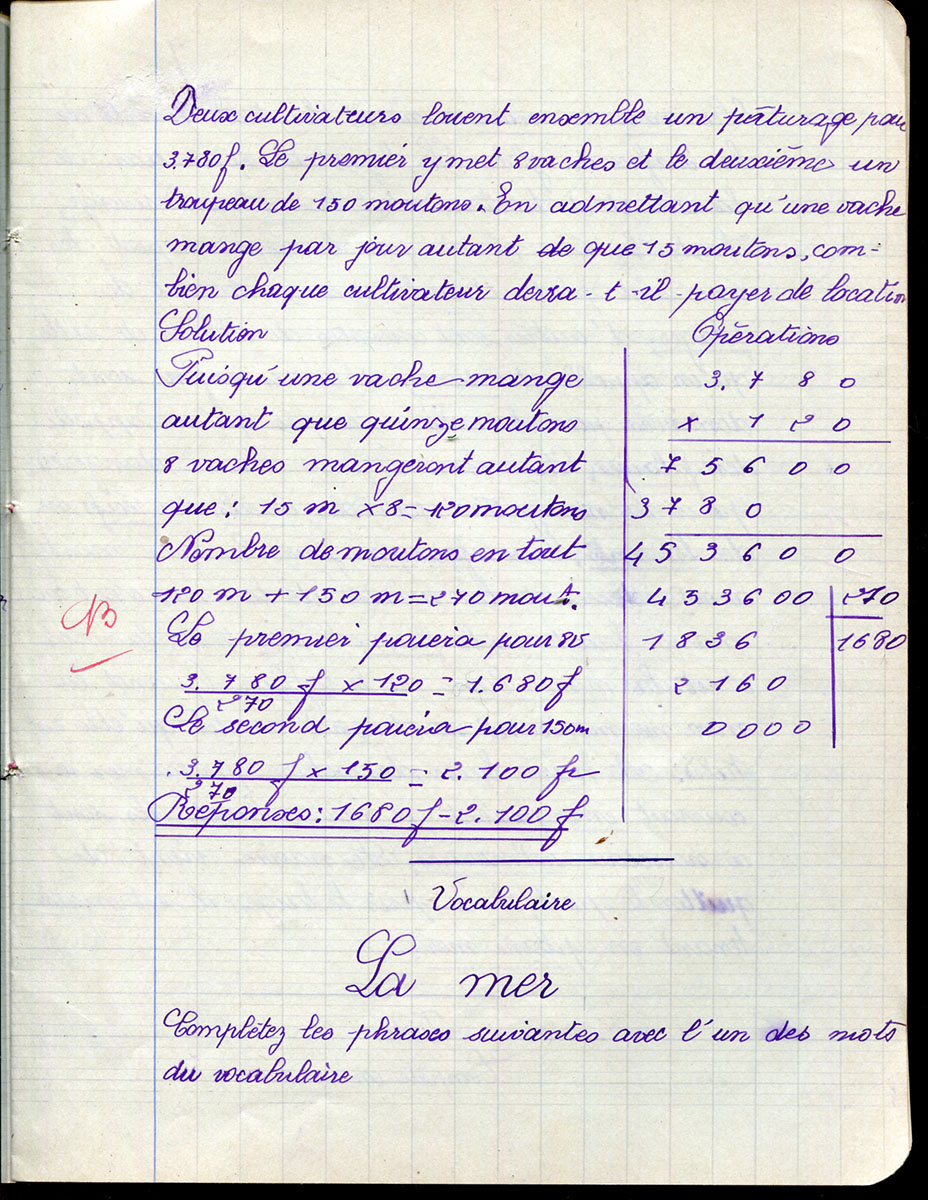 Deux cultivateurs louent ensemble un pâturage pour
3.780f. Le premier y met 8 vaches et le deuxième un
troupeau de 150 moutons. En admettant qu'une vache
mange par jour autant de que 15 moutons, com-
bien chaque cultivateur devra-t-il payer de location
Solution
Puisqu'une vache mange
autant que quinze moutons
8 vaches mangeront autant
que : 15 m x 8 = 120 moutons
Nombre de moutons en tout
120 m + 150 m = 270 mout.
Le premier paiera pour 8v
3.780 f x 120 = 1.680 f
270
Le second paiera pour 150m
3.780 f x 150 = 2.100 fr
270
Réponses : 1680 f - 2.100 f
Opérations
3.780
x 120
75600
3780
453600
453600 270
1836 1680
2160
0000
B
Vocabulaire
La mer
Complétez les phrases suivantes avec l'un des mots
du vocabulaire